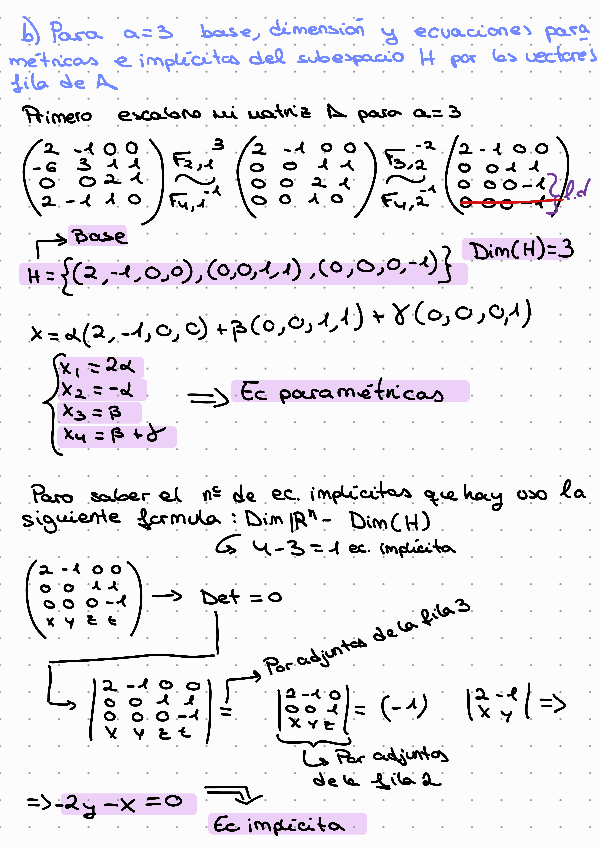 b) Para a=3 base, dimensión y ecuaciones para
métricas e implícitas del subespacio H por los vectores
fila de A
Primero escalono mi matriz A para a=3
(2 -1 0 0 / -6 3 1 1 / 0 0 2 1 / 2 -1 1 0) F2,1^3 ~ F4,1^-1 (2 -1 0 0 / 0 0 1 1 / 0 0 2 1 / 0 0 1 0) F3,2^-2 ~ F4,2^-1 (2 -1 0 0 / 0 0 1 1 / 0 0 0 -1 / 0 0 0 -1) } l.d
→ Base
H = {(2,-1,0,0), (0,0,1,1), (0,0,0,-1)} Dim(H)=3
X = α(2,-1,0,0) + β(0,0,1,1) + γ(0,0,0,1)
x1 = 2α
x2 = -α
x3 = β
x4 = β + γ
⇒ Ec paramétricas
Para saber el nº de ec. implícitas que hay uso la
siguiente formula : Dim ℝ^n - Dim(H)
↳ 4-3 = 1 ec. implícita
(2 -1 0 0 / 0 0 1 1 / 0 0 0 -1 / x y z t) → Det = 0
→ Por adjuntos de la fila 3
→ |2 -1 0 0 / 0 0 1 1 / 0 0 0 -1 / x y z t| = |2 -1 0 / 0 0 1 / x y z| = (-1) |2 -1 / x y| ⇒
↳ Por adjuntos
de la fila 2
⇒ -2y - x = 0 ⇒
Ec implícita